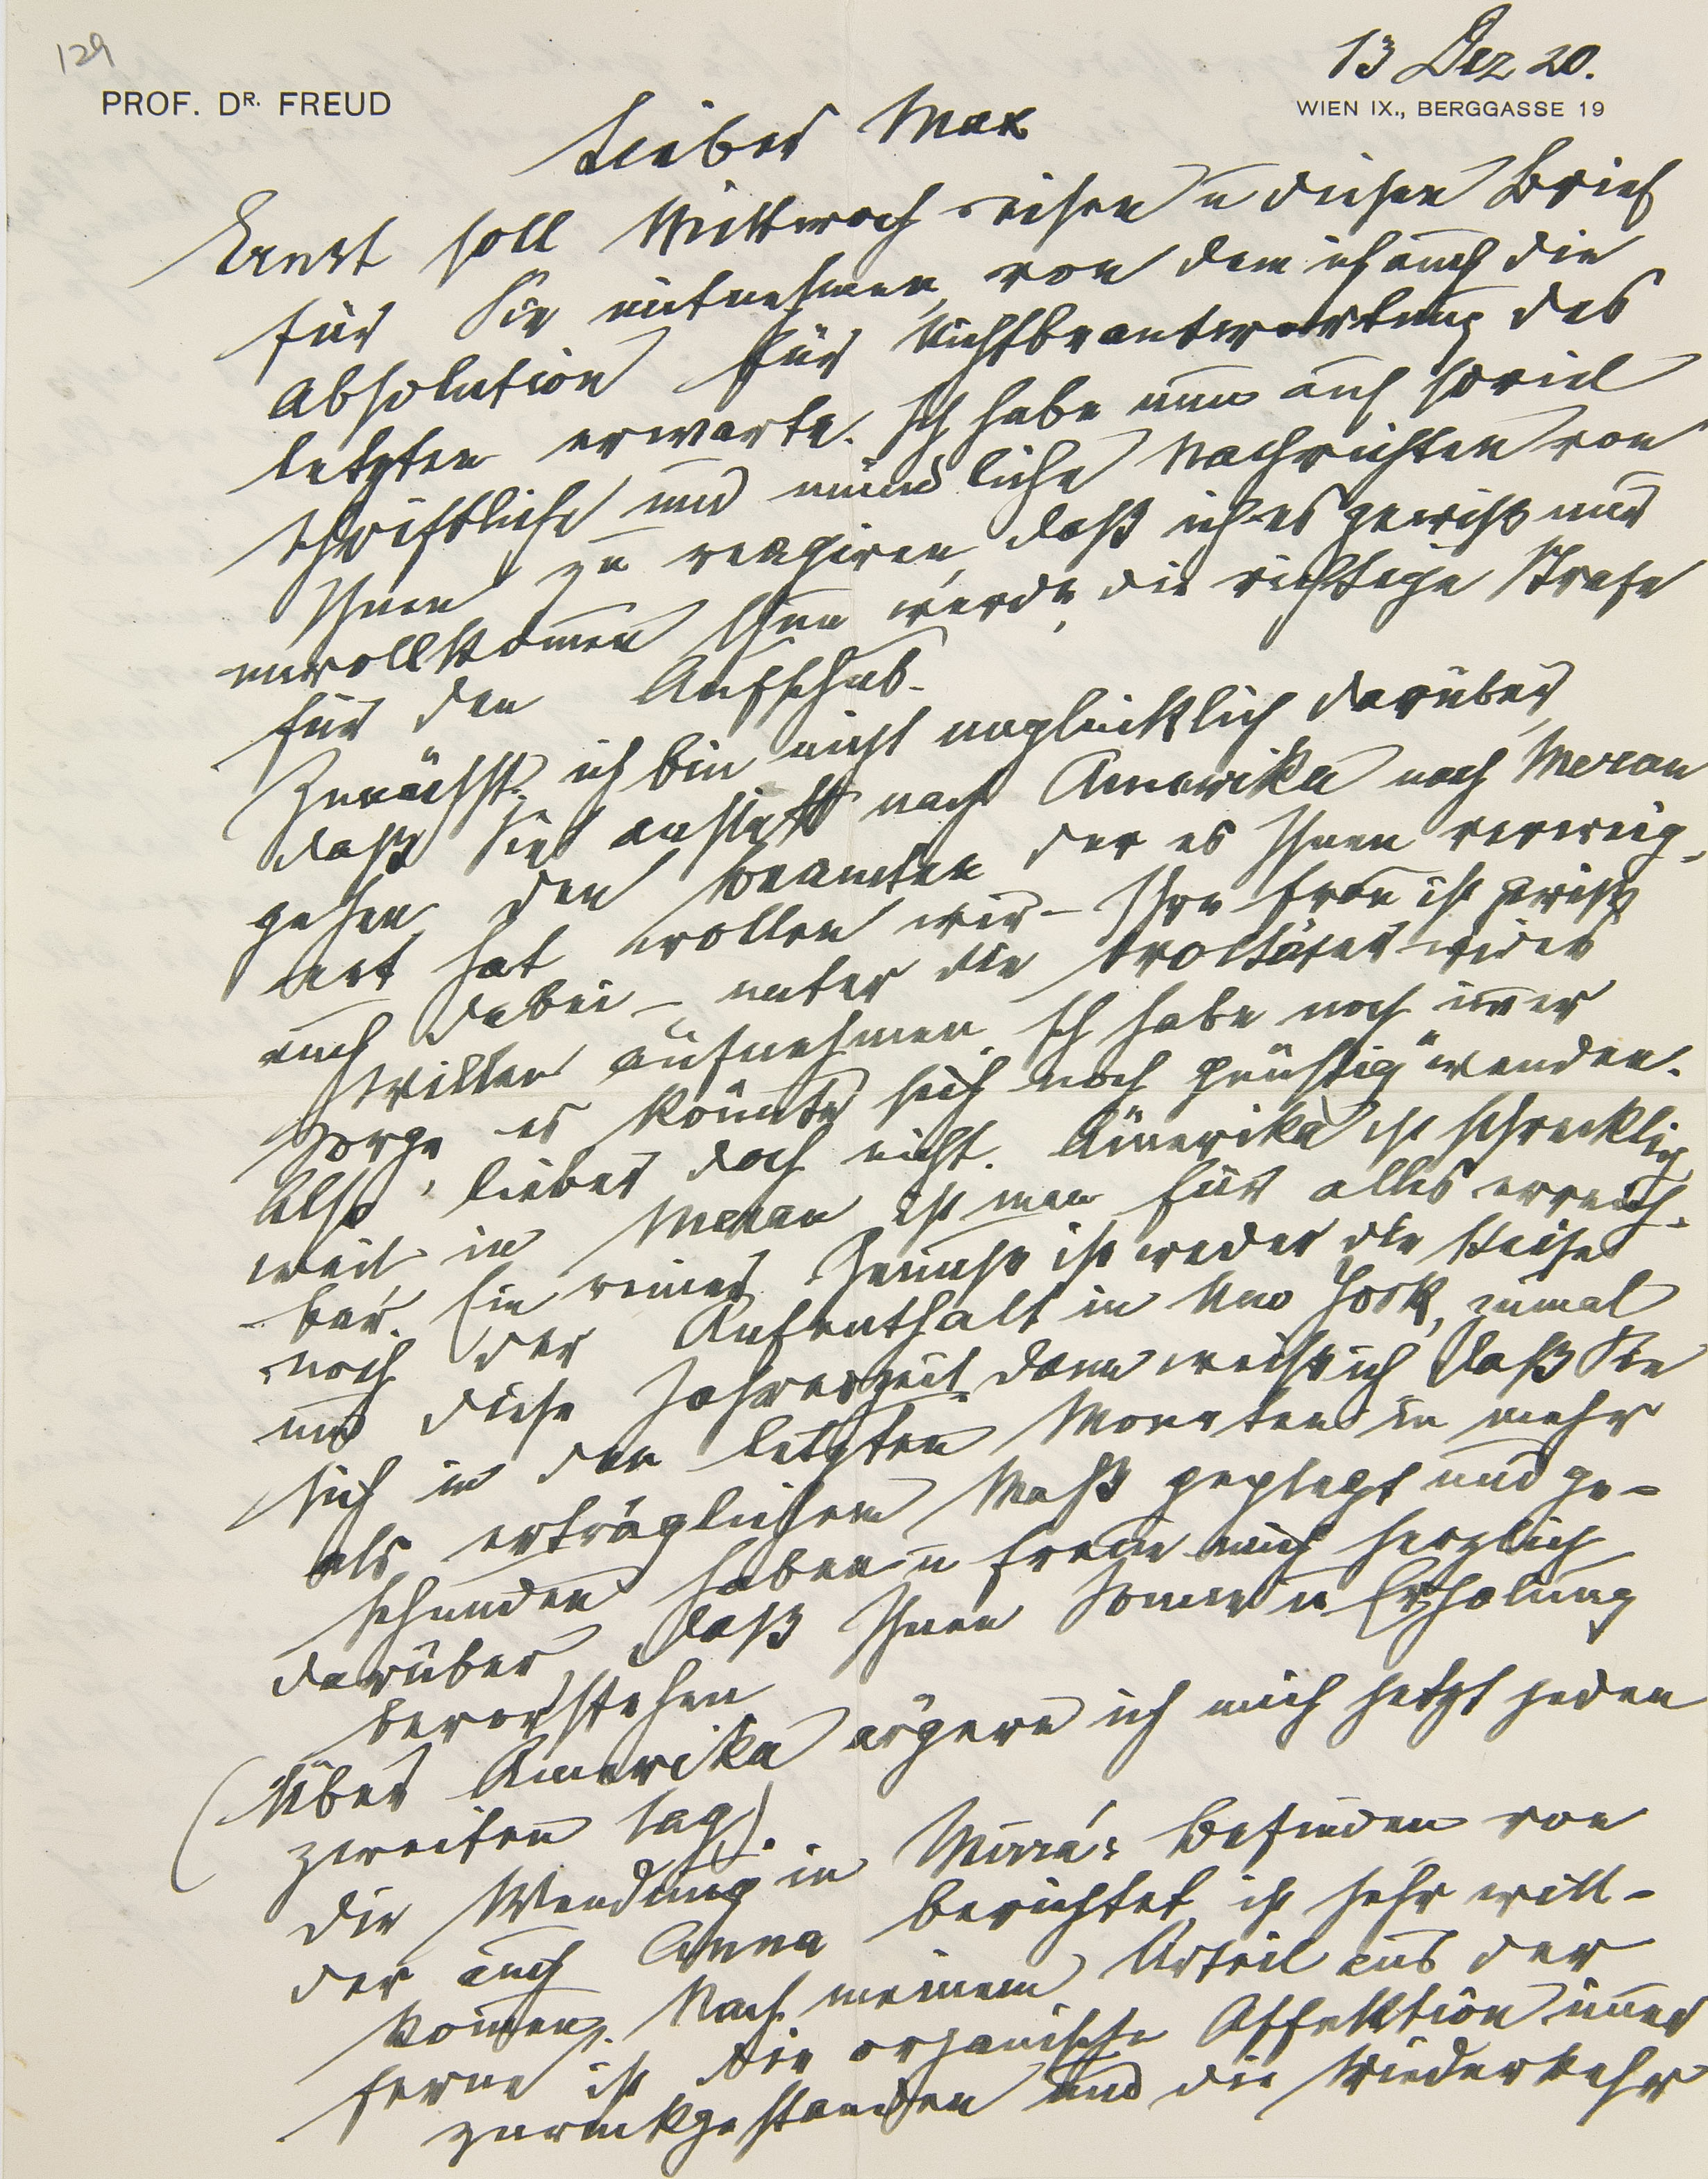 129
13 Dez 20.
PROF. DR. FREUD
WIEN IX., BERGGASSE 19
Lieber Max
Ernst soll Mittwoch reisen u diesen Brief
für Sie mitnehmen, von dem ich auch die
Absolution für Nichtbeantwortung des
letzten erwarte. Ich habe nun auf soviel
schriftliche und mündliche Nachrichten von
Ihnen zu reagiren, daß ich es gewiß nur
unvollkomen thun werde, die richtige Strafe
für den Aufschub.
Zunächst, ich bin nicht unglücklich darüber,
daß Sie anstatt nach Amerika nach Meran
gehen, den Beamten, der es Ihnen verweig-
ert hat wollen wir – Ihre Frau ist gewiß
auch dabei – unter die Wohltäter wider
Willen aufnehmen. Ich habe noch imer
Sorge es könnte sich noch „günstig" wenden.
Also, lieber doch nicht. Amerika ist schrecklich
weit in Meran ist man für alles erreich-
bar. Ein reiner Genuß ist weder die Reise
noch der Aufenthalt in New York, zumal
um diese Jahreszeit, dann weiß ich, daß Sie
sich in den letzten Monaten in mehr
als erträglichem Maß geplagt und ge-
schunden haben u freue mich herzlich
darüber, daß Ihnen Sonne u Erholung
bevorstehen
(Über Amerika ärgere ich mich jetzt jeden
zweiten Tag).
Die Wendung in Mirra's Befinden von
der auch Anna berichtet, ist sehr will-
komen. Nach meinem Urteil aus der
Ferne ist die organische Affektion imer
zurückgestanden und die Wiederkehr